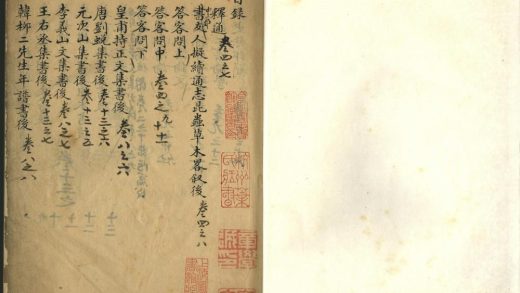 目錄
釋通 卷四之七
書人擬續通志昆蟲草木畧叙後 卷四之八
答客問上
答客問中 卷四之九 十 十一
答客問下
皇甫持正文集書後 卷八之六
唐劉蛻集書後 卷十三之六
元次山集書後 卷十三之五
李義山文集書後 卷八之七
王右丞集書後 卷十三之七
韓柳二先生年譜書後 卷八之八